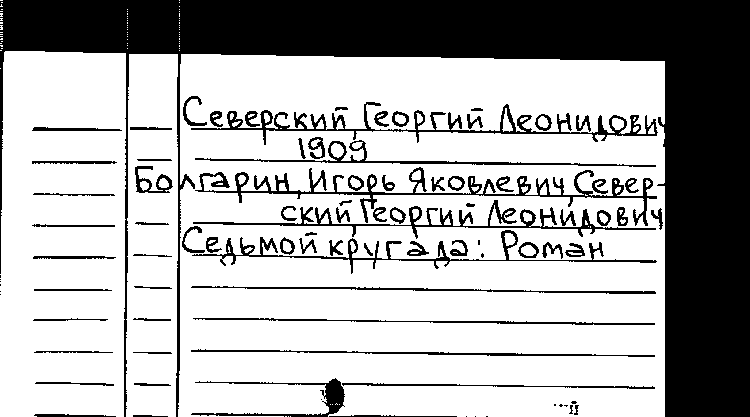 Северский, Георгий Леонидович
1909
Болгарин, Игорь Яковлевич, Север-
ский, Георгий Леонидович
Седьмой круг ада: Роман